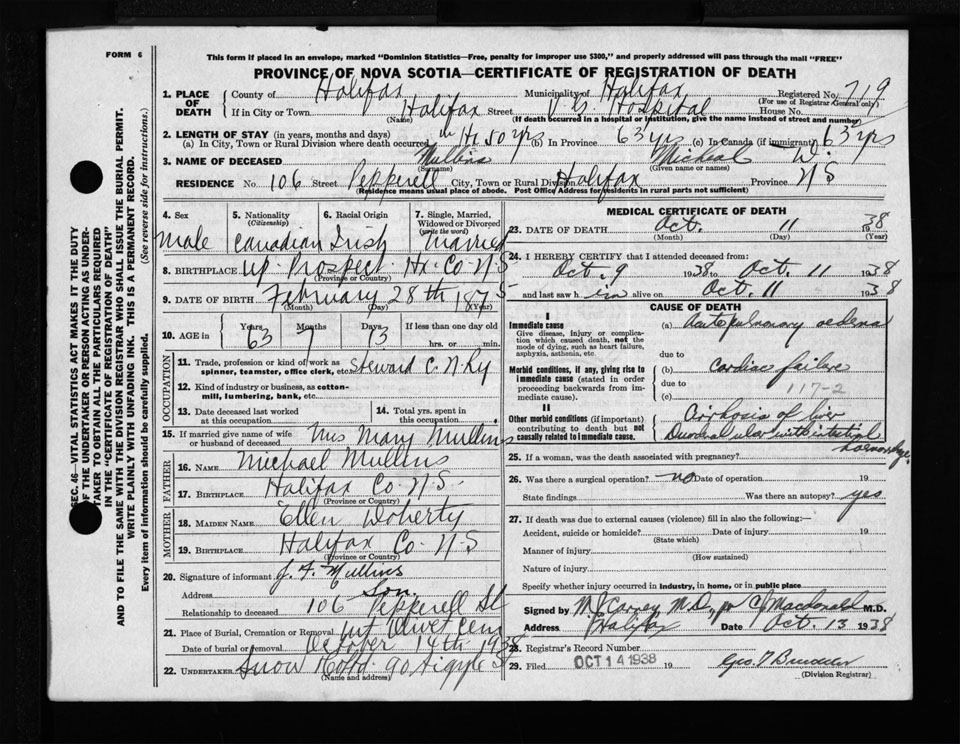 FORM 6
This form if placed in an envelope, marked "Dominion Statistics—Free, penalty for improper use $300," and properly addressed will pass through the mail "FREE"
PROVINCE OF NOVA SCOTIA—CERTIFICATE OF REGISTRATION OF DEATH
SEC. 46—VITAL STATISTICS ACT MAKES IT THE DUTY
OF THE UNDERTAKER OR PERSON ACTING AS UNDER-
TAKER TO OBTAIN ALL THE PARTICULARS REQUIRED
IN THE "CERTIFICATE OF REGISTRATION OF DEATH"
AND TO FILE THE SAME WITH THE DIVISION REGISTRAR WHO SHALL ISSUE THE BURIAL PERMIT.
WRITE PLAINLY WITH UNFADING INK. THIS IS A PERMANENT RECORD.
Every item of information should be carefully supplied. (See reverse side for instructions.)
1. PLACE OF DEATH County of Halifax Municipality of Halifax Registered No. 719
(For use of Registrar General only)
If in City or Town Halifax Street V. G. Hospital House No.
(Name) (If death occurred in a hospital or institution, give the name instead of street and number)
2. LENGTH OF STAY (in years, months and days)
(a) In City, Town or Rural Division where death occurred in Hx 50 yrs (b) In Province 63 yrs (c) In Canada (if immigrant) 63 yrs
3. NAME OF DECEASED Mullins Micheal W.
(Surname) (Given name or names)
RESIDENCE No. 106 Street Pepperell City, Town or Rural Division Halifax Province N S
(Residence means usual place of abode. Post Office Address for residents in rural parts not sufficient)
4. Sex 5. Nationality (Citizenship) 6. Racial Origin 7. Single, Married, Widowed or Divorced (write the word)
Male Canadian Irish Married
8. BIRTHPLACE Up. Prospect Hx. Co. N. S
(Province or Country)
9. DATE OF BIRTH February 28th 1875
(Month) (Day) (Year)
10. AGE in Years Months Days If less than one day old
63 7 13 hrs. or min.
OCCUPATION
11. Trade, profession or kind of work as spinner, teamster, office clerk, etc. Steward C. N. Ry
12. Kind of industry or business, as cotton-mill, lumbering, bank, etc.
13. Date deceased last worked at this occupation 14. Total yrs. spent in this occupation
15. If married give name of wife or husband of deceased Mrs Mary Mullins
FATHER
16. NAME Michael Mullins
17. BIRTHPLACE Halifax Co. N. S.
(Province or Country)
MOTHER
18. MAIDEN NAME Ellen Doherty
19. BIRTHPLACE Halifax Co. N. S
(Province or Country)
20. Signature of informant J. F. Mullins
Address Son.
Relationship to deceased 106 Pepperell St
21. Place of Burial, Cremation or Removal Mt Olivet Cem
Date of burial or removal October 14th 1938
22. UNDERTAKER Snow & Co Ltd. 90 Argyle St
(Name and address)
MEDICAL CERTIFICATE OF DEATH
23. DATE OF DEATH Oct. 11 1938
(Month) (Day) (Year)
24. I HEREBY CERTIFY that I attended deceased from:
Oct. 9 1938 to Oct. 11 1938
and last saw him alive on Oct. 11 1938
CAUSE OF DEATH
I
Immediate cause
Give disease, injury or complication which caused death, not the mode of dying, such as heart failure, asphyxia, asthenia, etc.
(a) Acute pulmonary oedema
due to
Morbid conditions, if any, giving rise to immediate cause (stated in order proceeding backwards from immediate cause).
(b) Cardiac failure
due to 117-2
(c)
II
Other morbid conditions (if important) contributing to death but not causally related to immediate cause.
Cirrhosis of liver
Duodenal ulcer with intestinal
hemorrhage.
25. If a woman, was the death associated with pregnancy?
26. Was there a surgical operation? no Date of operation 19
State findings Was there an autopsy? yes
27. If death was due to external causes (violence) fill in also the following:—
Accident, suicide or homicide? Date of injury 19
(State which)
Manner of injury
(How sustained)
Nature of injury
Specify whether injury occurred in industry, in home, or in public place
Signed by M J Carney M.D., per C J Macdonald M.D.
Address Halifax Date Oct. 13 1938
28. Registrar's Record Number
29. Filed OCT 14 1938 19
(Division Registrar)